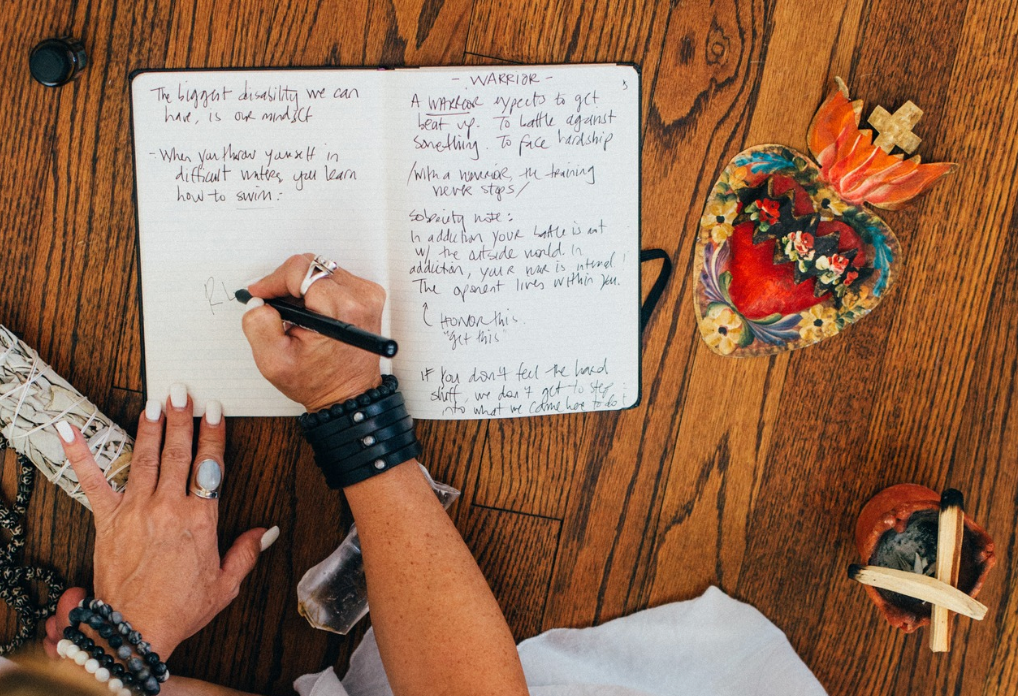 The biggest disability we can
have, is our mindset
- When you throw yourself in
difficult waters, you learn
how to swim.
RU
- WARRIOR -
A WARRIOR expects to get
beat up. To battle against
something. To face hardship
/with a warrior, the training
never stops/
Sobriety note:
In addiction your battle is not
w/ the outside world. In
addiction, your war is internal.
The oponent lives within you.
Honor this.
"get this"
If you don't feel the hard
stuff, we don't get to step
into what we came here to do!